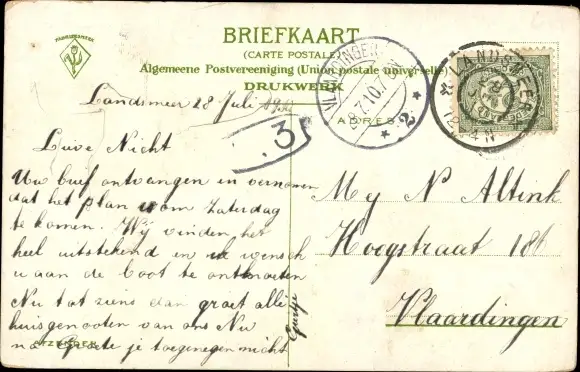 BRIEFKAART
(CARTE POSTALE)
Algemeene Postvereeniging (Union postale universelle)
DRUKWERK
ADRES
VLAARDINGEN
2
LANDSMEER
3
Landsmeer 28 Juli
Lieve Nicht
Uw brief ontvangen en vernomen
dat het plan is om Zaterdag
te komen. Wij vinden het
heel uitstekend en ik wensch
u aan de boot te ontmoeten
Nu tot ziens dan groet alle
huisgenooten van ons Nu
Groete je toegenegen nicht
Geertje
AFZENDER
Mej N Altink
Hoogstraat 186
Vlaardingen